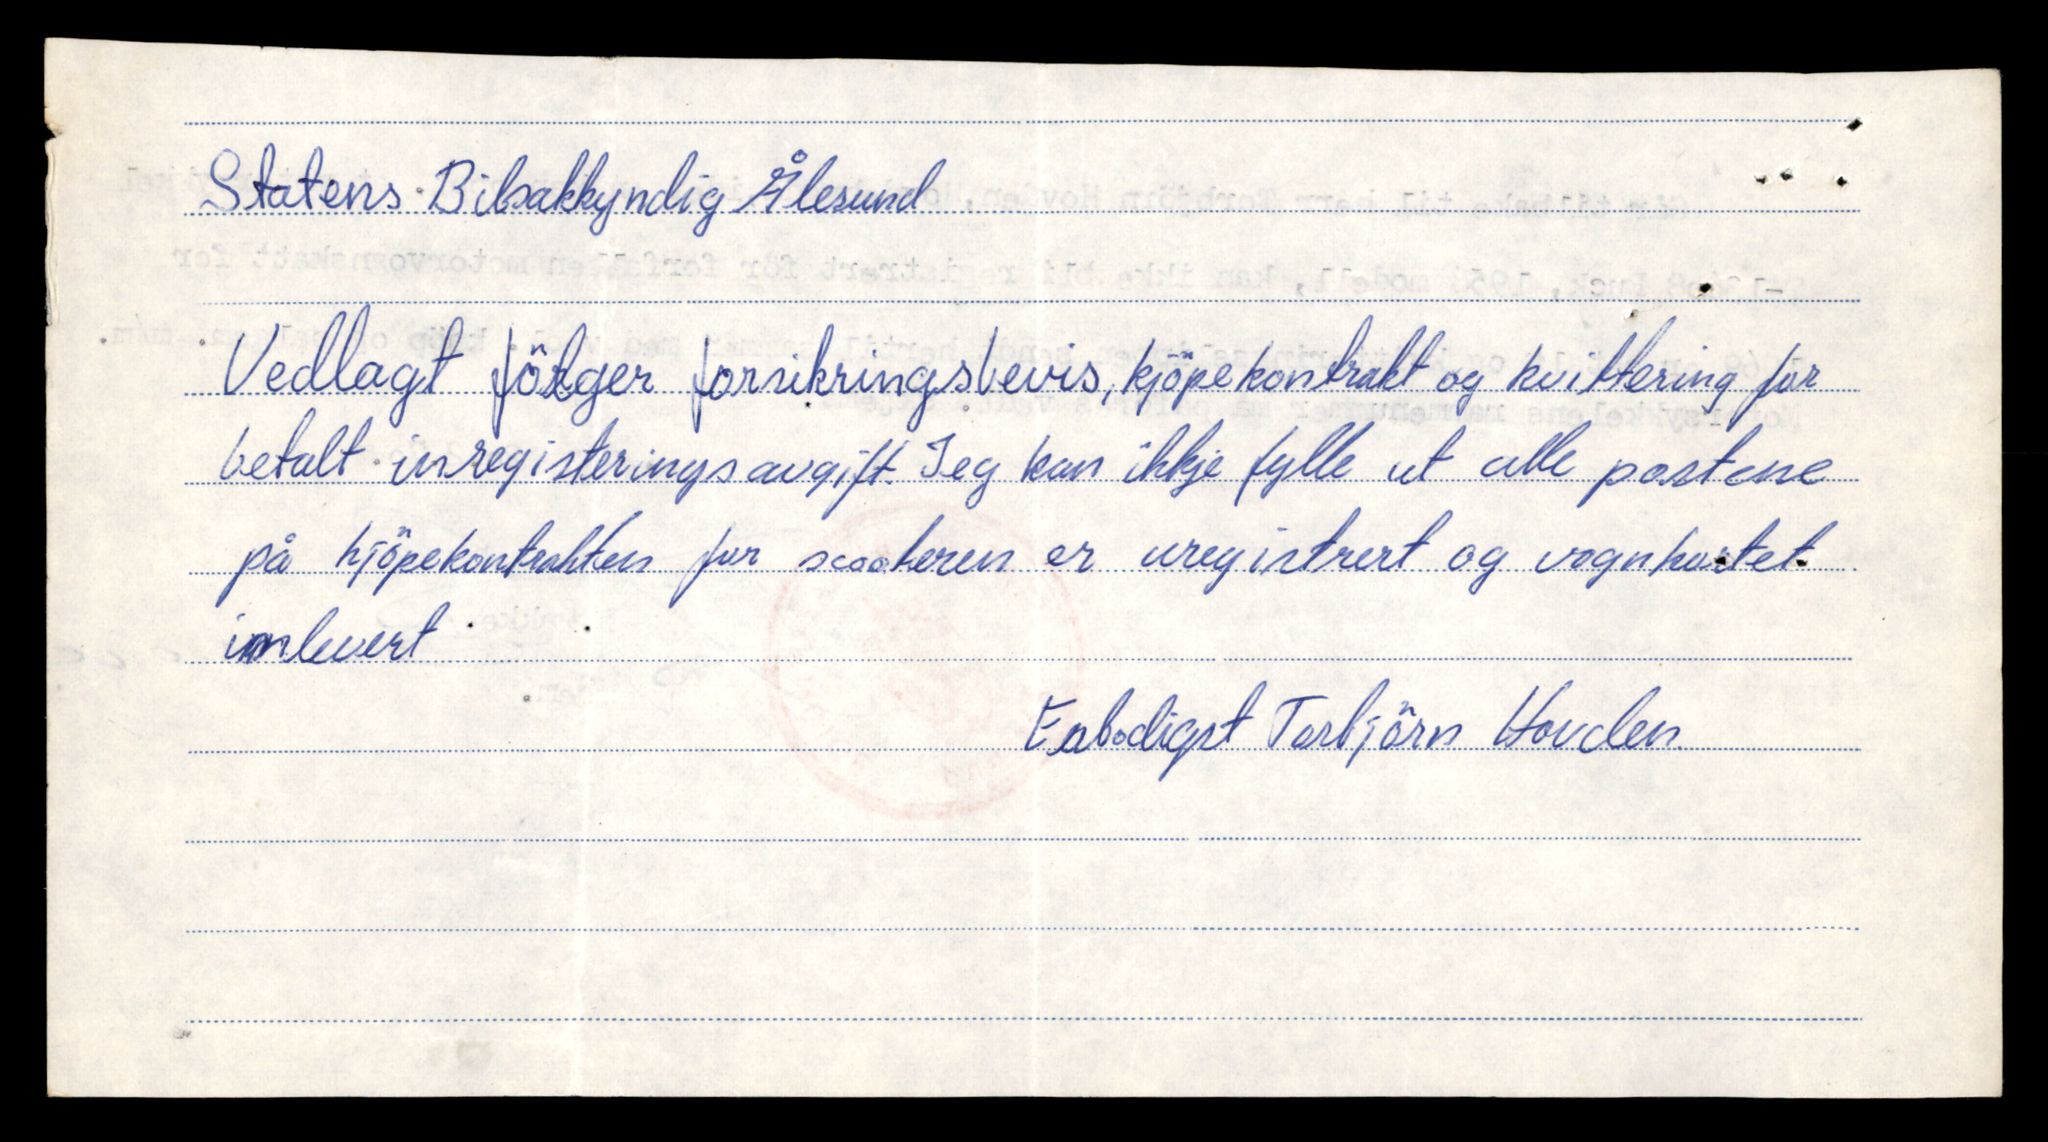 Statens Bilsakkyndig Ålesund
Vedlagt fölger forsikringsbevis, kjöpekontrakt og kvittering for
betalt inregisteringsavgift. Jeg kan ikkje fylle ut alle postene
på kjöpekontrakten for scooteren er uregistrert og vognkortet
innlevert
Erbodigst Torbjörn Hovden